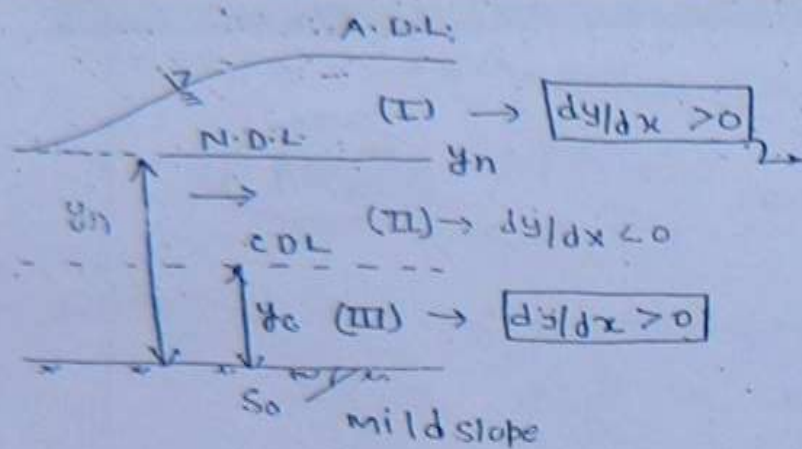 A.D.L.
(I) → dy/dx >0
N.D.L. yn
yn (II) → dy/dx <0
CDL
yc (III) → dy/dx >0
So
mild slope